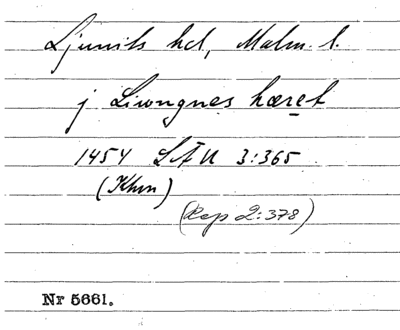 Ljunits hd, Malm. l.
j Liwngnes hæret
1454 LÆU 3:365
(Khvn)
(Rep 2:378)
Nr 5661.